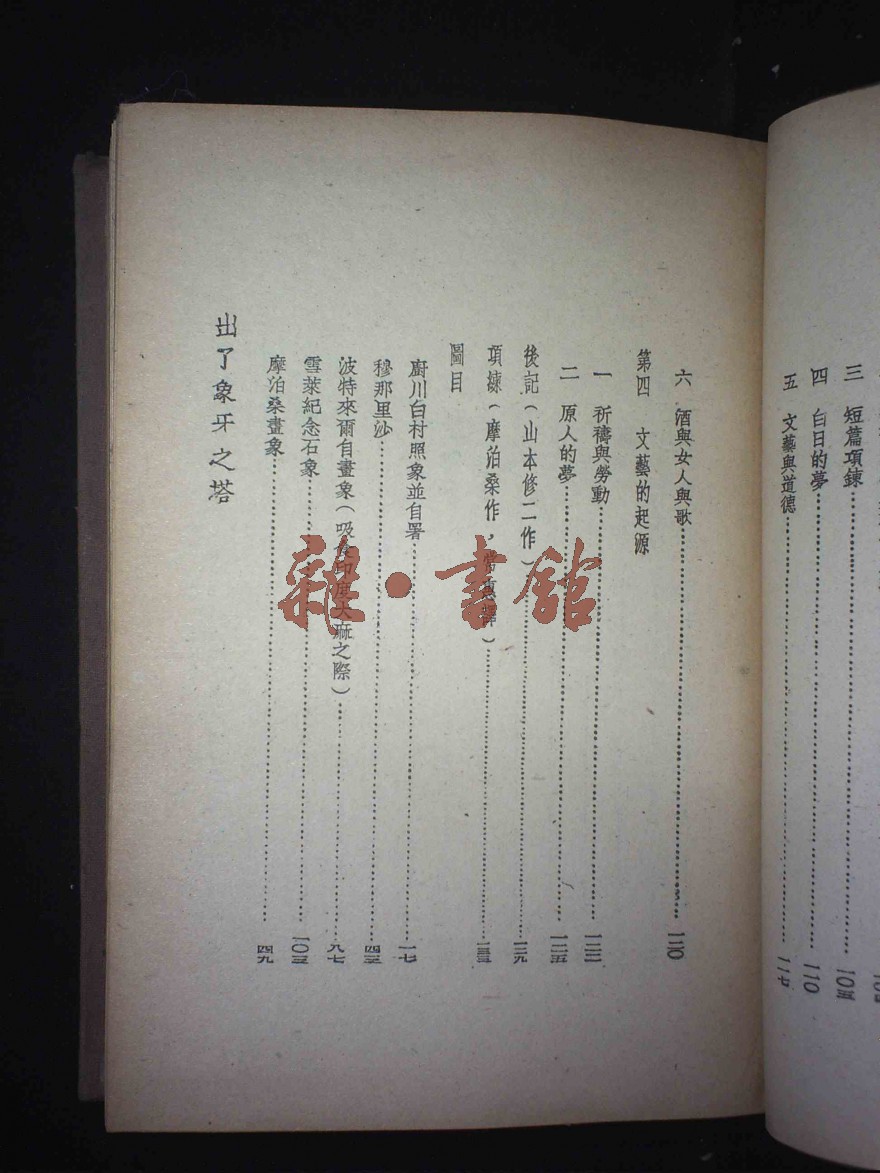 三 短篇項鍊……一〇五
四 白日的夢……一一〇
五 文藝與道德……一一七
六 酒與女人與歌……一二〇
第四 文藝的起源
一 祈禱與勞動……
二 原人的夢……一二五
後記(山本修二作)……
項鍊(摩泊桑作,常惠譯)……
圖目
廚川白村照象並自署……一七
穆那里沙……
波特來爾自畫象(吸食印度大麻之際)……九七
雪萊紀念石象……
摩泊桑畫象……四九
出了象牙之塔
雜·書館